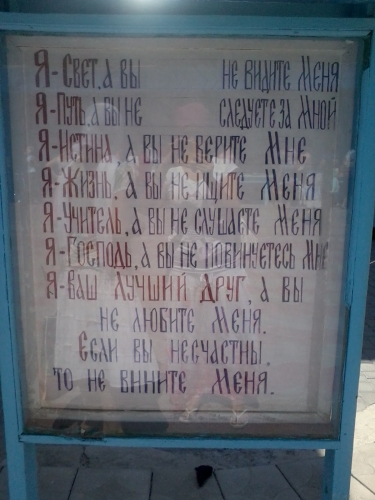 Я-Свет, а вы не видите Меня
Я-Путь, а вы не следуете за Мной
Я-Истина, а вы не верите Мне
Я-Жизнь, а вы не ищите Меня
Я-Учитель, а вы не слушаете Меня
Я-Господь, а вы не повинуетесь Мне
Я-Ваш лучший друг, а вы
не любите Меня.
Если вы несчастны,
то не вините Меня.